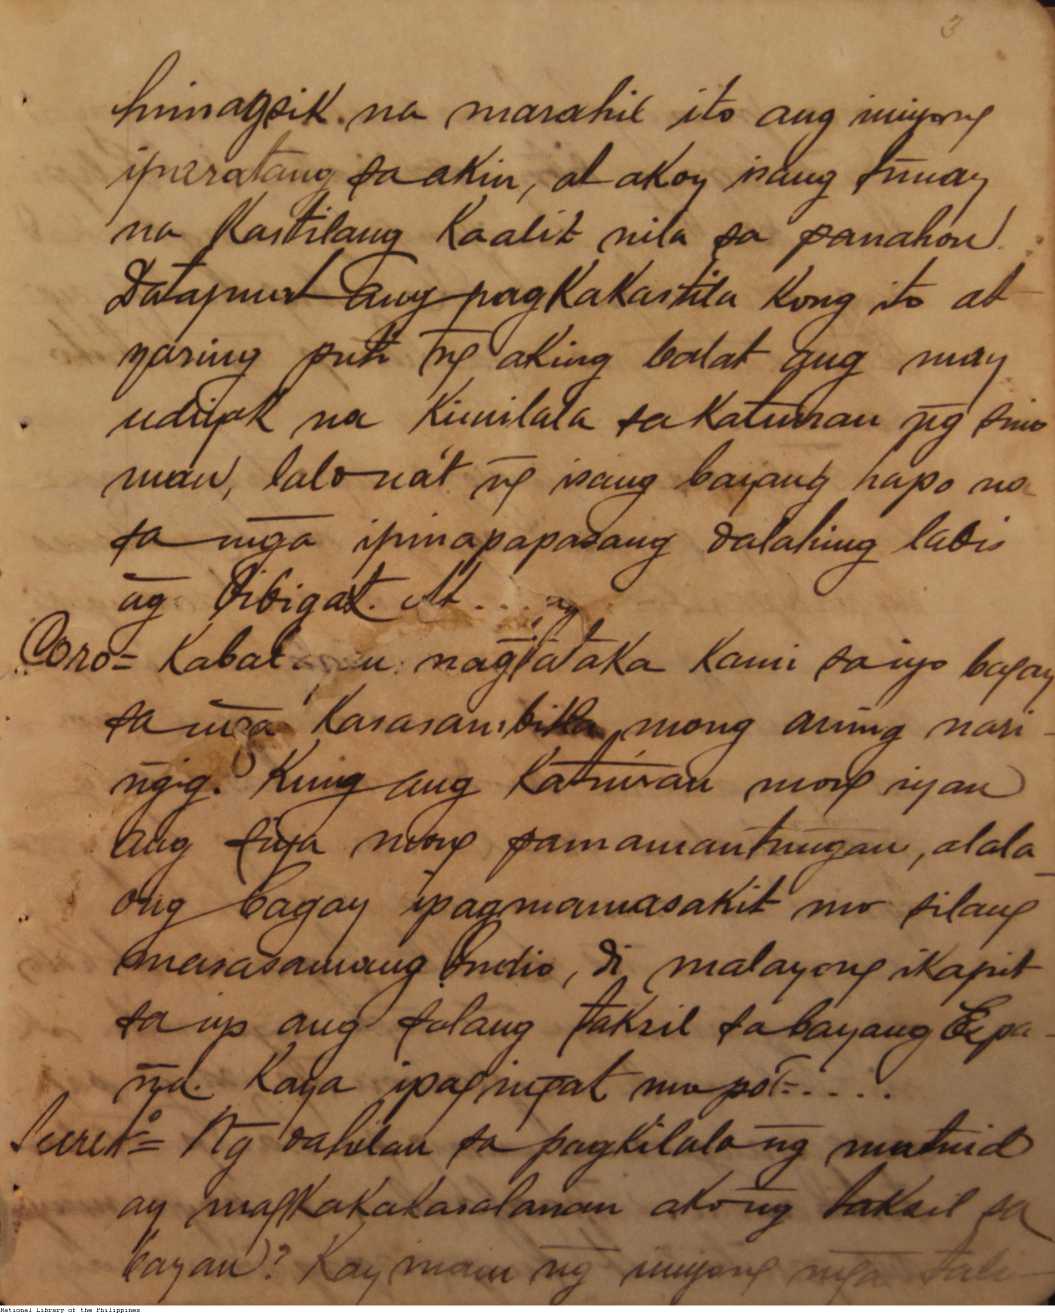 3
himagsik na marahil ito ang iniyong
iparatang sa akin, at akoy isang tunay
na Kastilang Kaalit nila sa panahon.
Datapwat ang pagkakastila kong ito at
yaring puti n̄g aking balat ang may
udiyok na kimilala sa katuiran n̄g sino
man, lalo na't n̄g isang bayang hapo na
sa mn̄ga ipinapapasang dalahing labis
n̄g bibigat. At ....
Coro= Kabal nagtataka kami sa iyo bagay
sa mn̄ga kasasam̄bitla mong aming nari-
n̄gig. Kung ang katuiran mong iyan
ang siya mong pamamantun̄gan, alala
ong bagay ipagmamasakit mo silang
masasamang Indio, di malayong ikapit
sa iyo ang salang taksil sa bayang Espa-
ña. Kaya ipag in̄gat mo pô=....
Secret°= Ng dahilan sa pagkilala n̄g matuid
ay magkakakasalanan akong taksil sa
bayan? Kay inam n̄g iniyong mn̄ga tali-
National Library of the Philippines